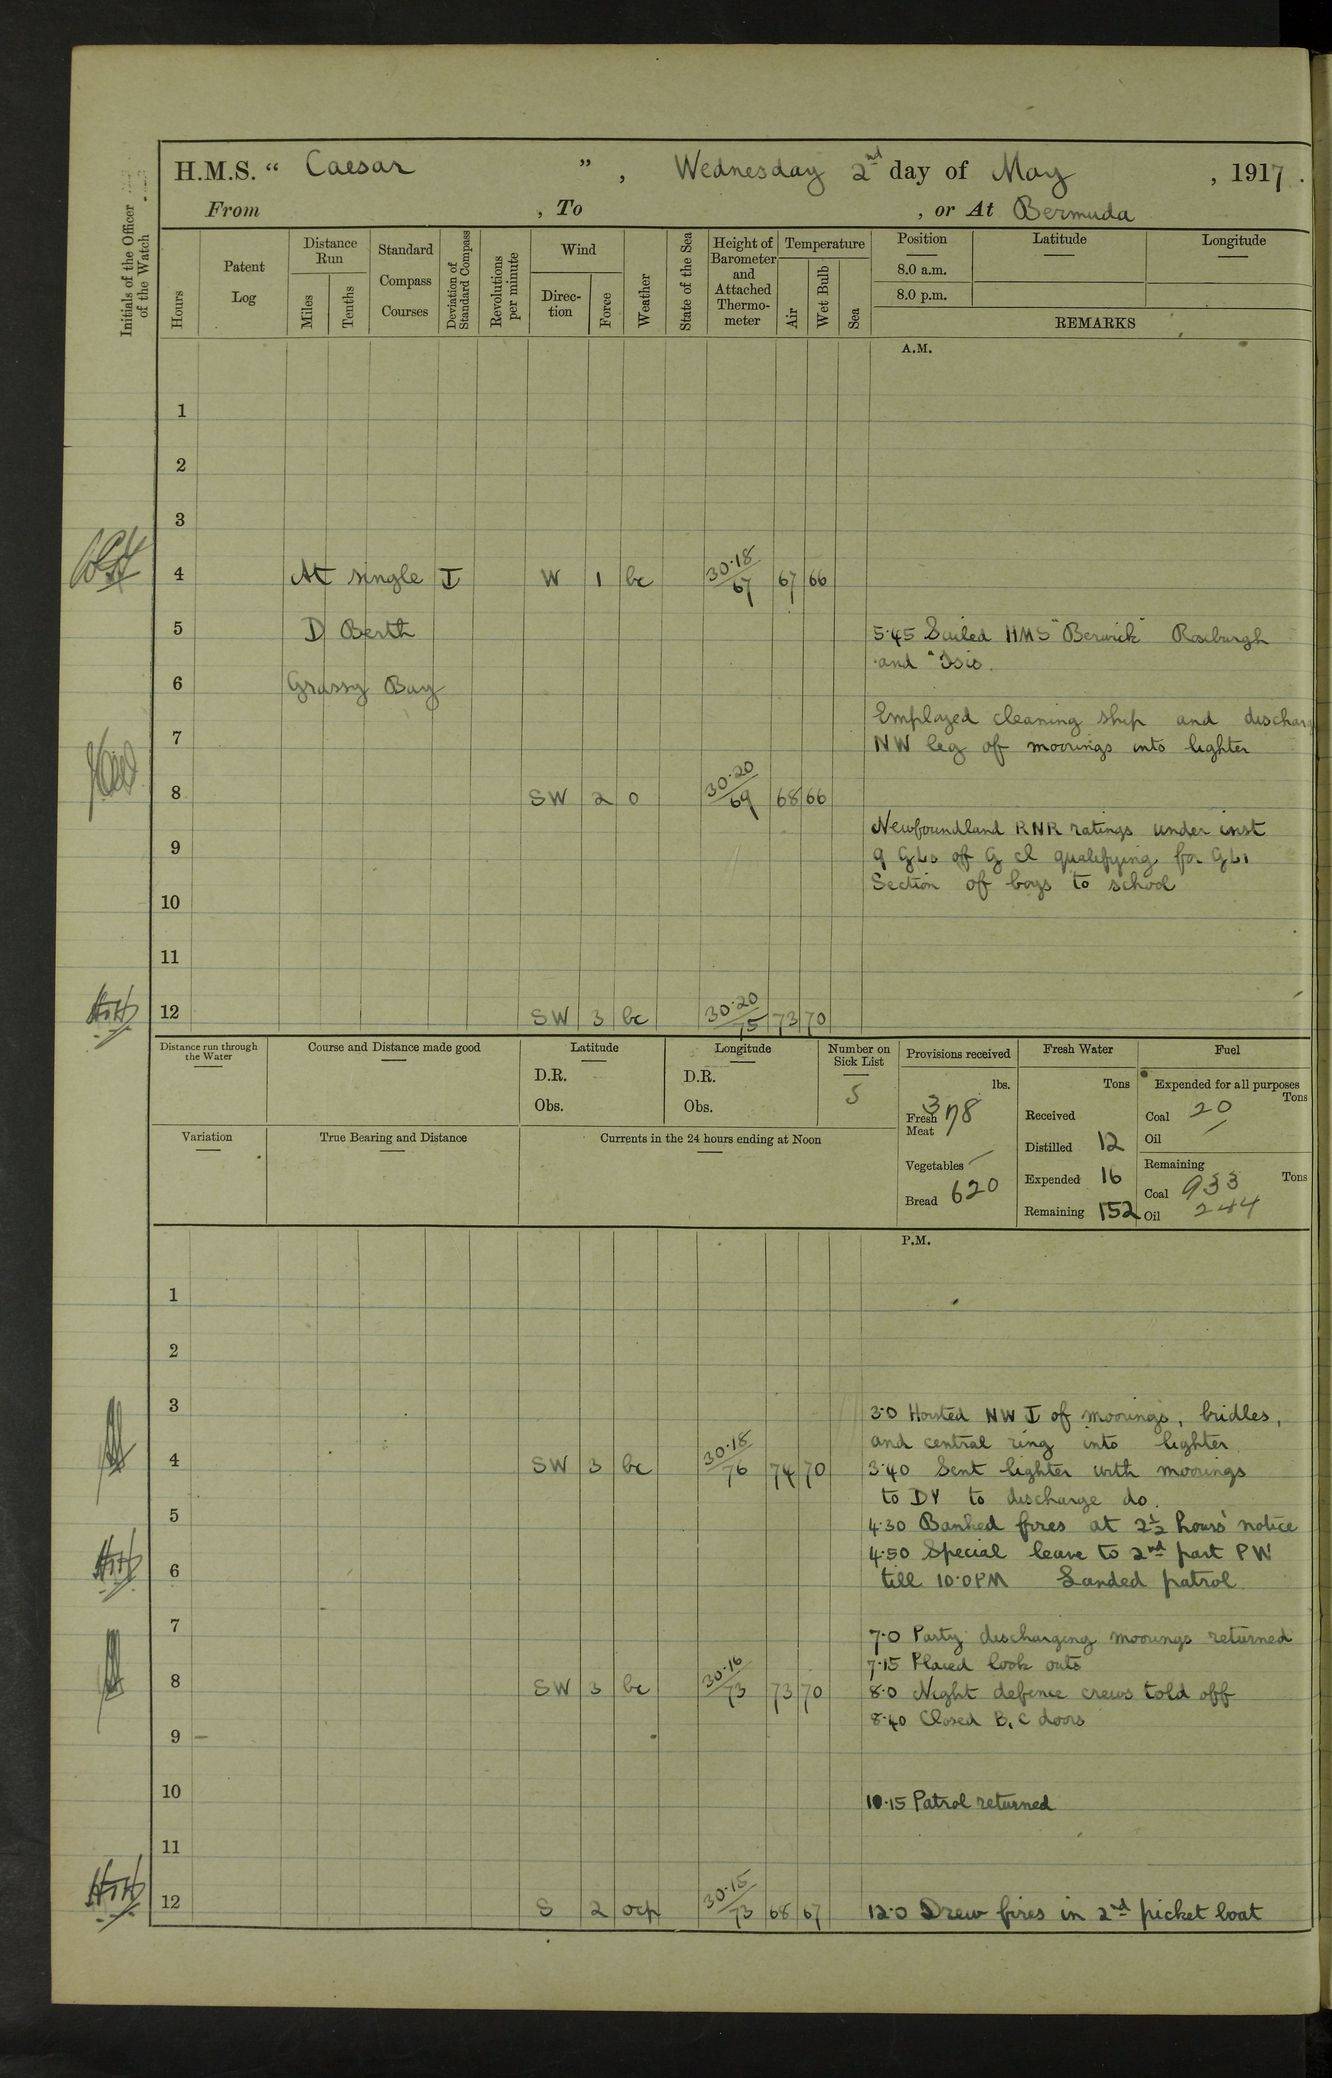 H.M.S. “ Caesar ”, Wednesday 2nd day of May, 1917.
From , To , or At Bermuda
Initials of the Officer of the Watch
Hours
Patent Log
Distance Run
Miles
Tenths
Standard Compass Courses
Deviation of Standard Compass
Revolutions per minute
Wind
Direction
Force
Weather
State of the Sea
Height of Barometer and Attached Thermometer
Temperature
Air
Wet Bulb
Sea
Position
8.0 a.m.
8.0 p.m.
Latitude
Longitude
REMARKS
A.M.
1
2
3
4 At single I W 1 bc 30.18/67 67 66
5 D Berth 5.45 Sailed HMS "Berwick" Roxburgh
and "Isis.
6 Grassy Bay
Employed cleaning ship and discharg
7 NW leg of moorings into lighter
8 SW 2 o 30.20/69 68 66
Newfoundland RNR ratings under inst
9 9 GLs off G cl qualifying for GLI
Section of boys to school
10
11
12 SW 3 bc 30.20/75 73 70
Distance run through the Water
Course and Distance made good
Latitude
D.R.
Obs.
Longitude
D.R.
Obs.
Number on Sick List
5
Provisions received
lbs.
Fresh Meat 378
Vegetables —
Bread 620
Fresh Water
Tons
Received
Distilled 12
Expended 16
Remaining 152
Fuel
Expended for all purposes
Tons
Coal 20
Oil —
Remaining
Tons
Coal 933
Oil 244
Variation
True Bearing and Distance
Currents in the 24 hours ending at Noon
P.M.
1
2
3 3.0 Hoisted NW I of moorings, bridles,
and central ring into lighter.
4 SW 3 bc 30.18/76 74 70 3.40 Sent lighter with moorings
to DY to discharge do.
5 4.30 Banked fires at 2½ hours' notice
4.50 Special leave to 2nd part PW
6 till 10.0PM Landed patrol.
7 7.0 Party discharging moorings returned
7.15 Placed look outs
8 SW 3 bc 30.16/73 73 70 8.0 Night defence crews told off
8.40 Closed B, C doors
9 –
10 10.15 Patrol returned
11
12 S 2 ocp 30.15/73 68 67 12.0 Drew fires in 2nd picket boat